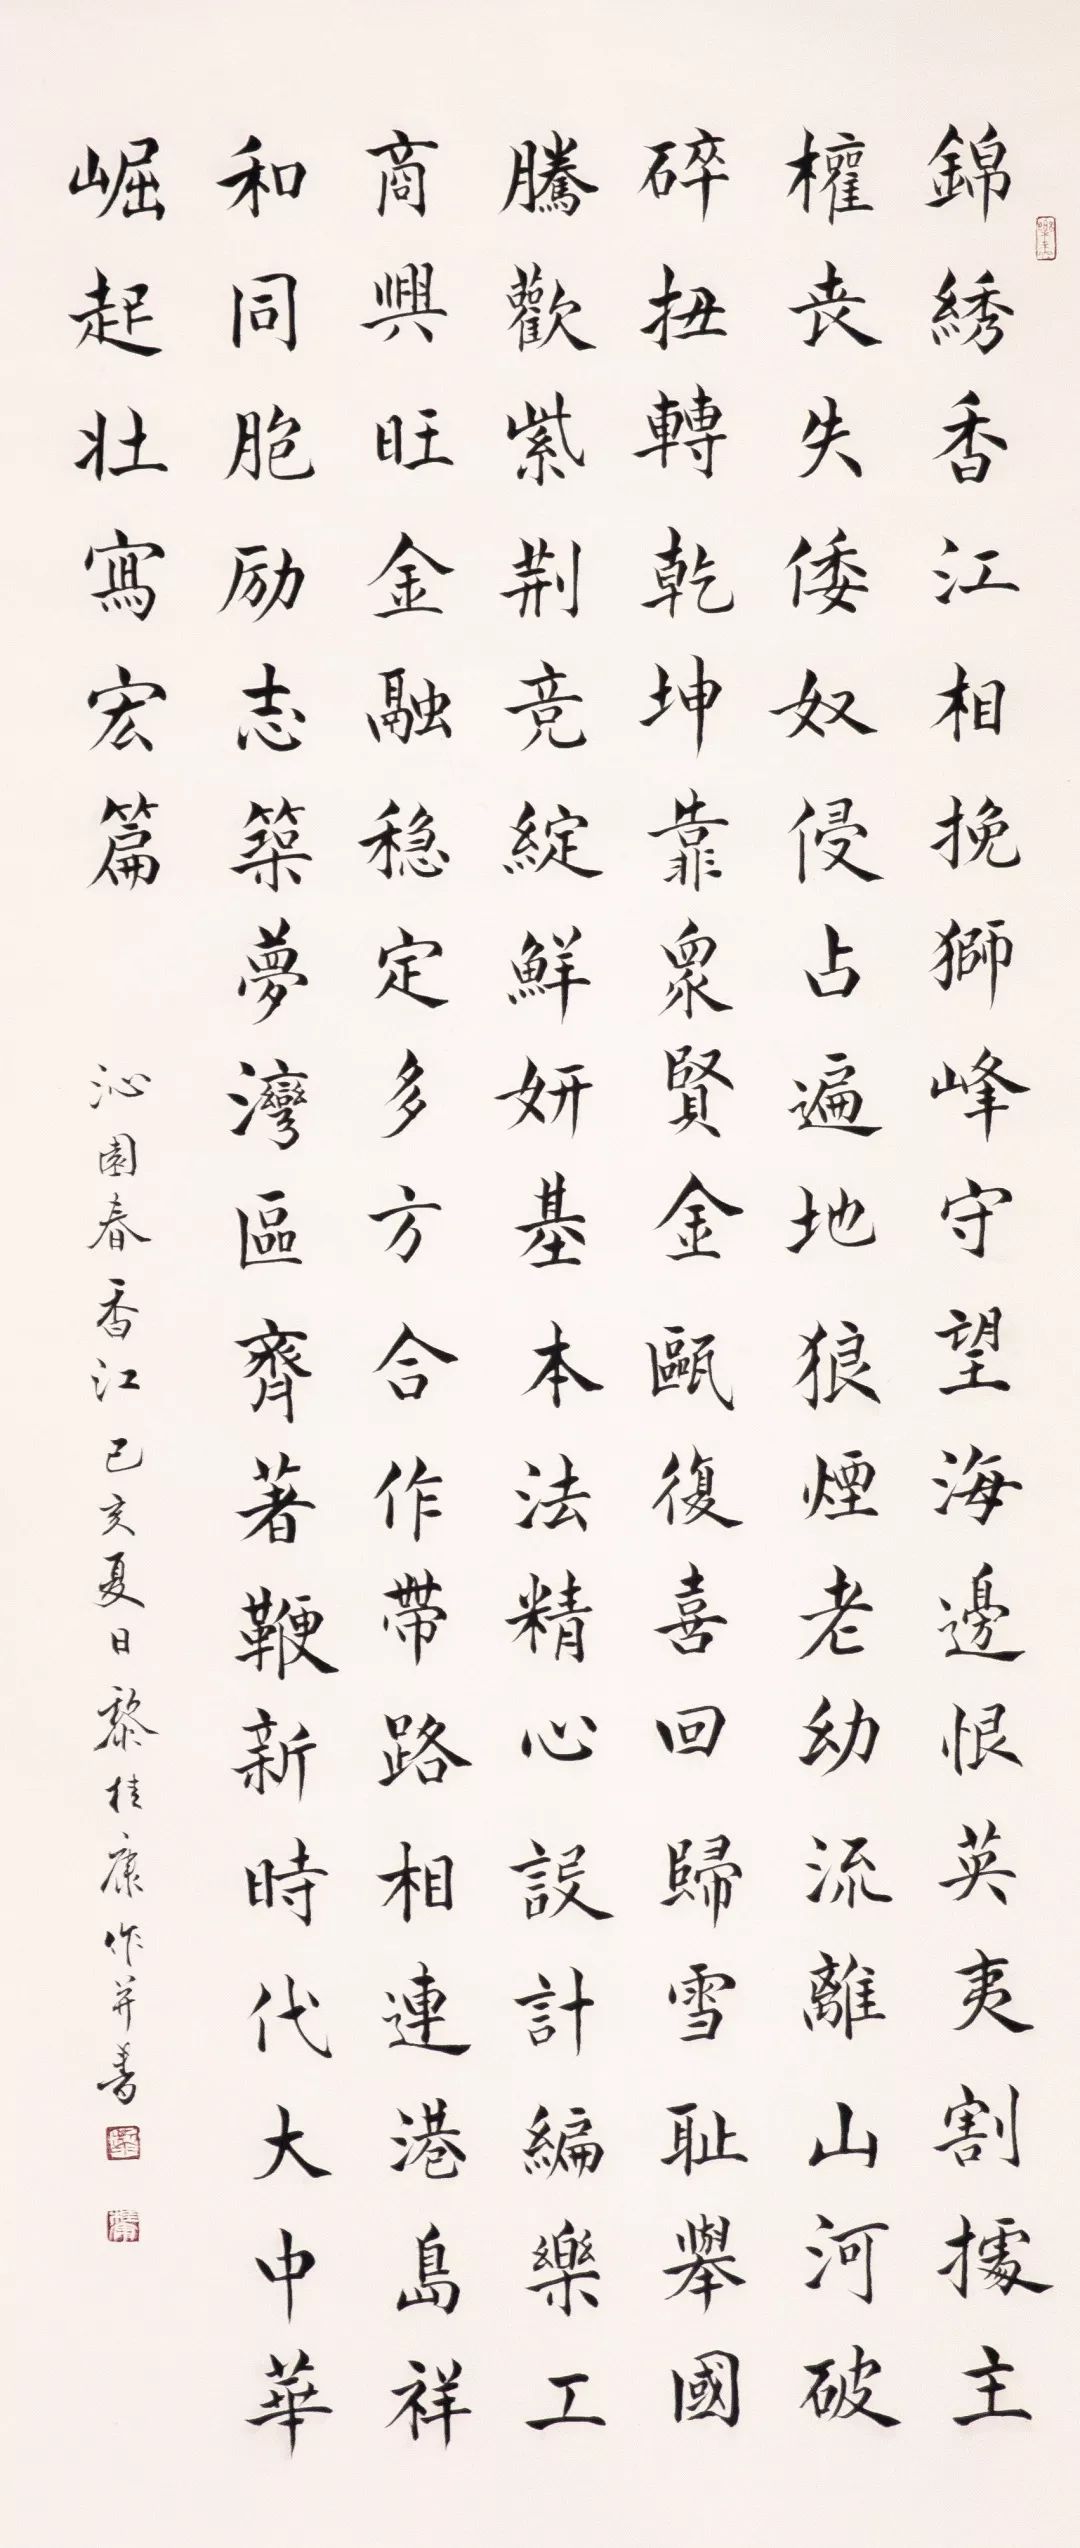 錦綉香江相挽獅峰守望海邊恨英夷割據主
權丧失倭奴侵占遍地狼煙老幼流離山河破
碎扭轉乾坤靠衆賢金甌復喜回歸雪耻舉國
騰歡紫荆竞綻鮮妍基本法精心設計編樂工
商興旺金融稳定多方合作帶路相連港島祥
和同胞励志築夢灣區齊著鞭新時代大中華
崛起壮寫宏篇
沁園春香江己亥夏日黎桂康作并書